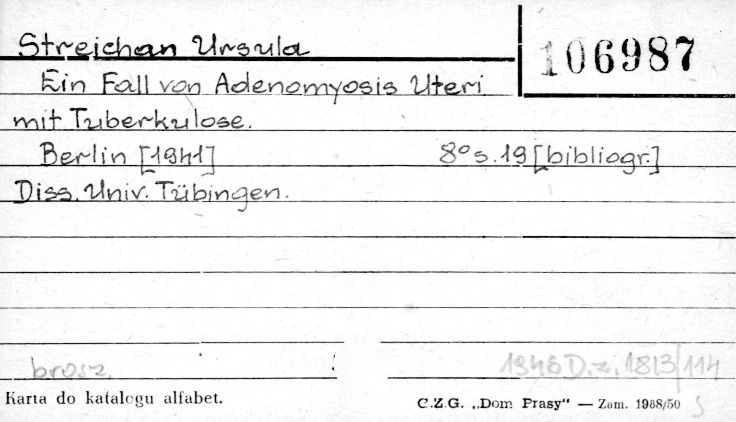 Streichan Ursula
106987
Ein Fall von Adenomyosis Uteri
mit Tuberkulose.
Berlin [1941] 8° s. 19 [bibliogr.]
Diss. Univ. Tübingen.
brosz.
1946 D. z. 1813/114
Karta do katalogu alfabet.
C.Z.G. „Dom Prasy" — Zam. 1988/50